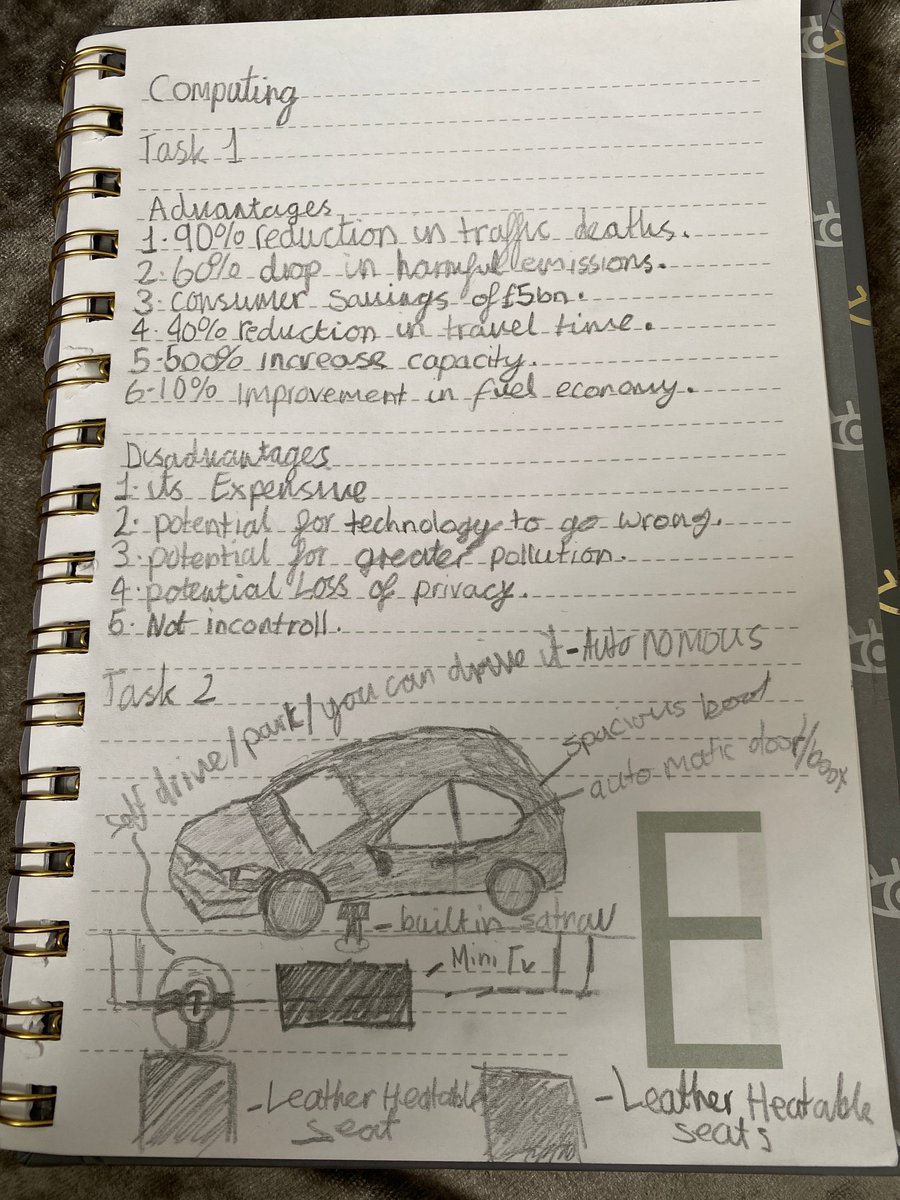 Computing
Task 1
Advantages
1. 90% reduction in traffic deaths.
2. 60% drop in harmful emissions.
3. consumer savings of £5bn.
4. 40% reduction in travel time.
5. 500% increase capacity.
6. 10% improvement in fuel economy.
Disadvantages
1. its Expensive
2. potential for technology to go wrong.
3. potential for greater pollution.
4. potential Loss of privacy.
5. Not incontroll.
Task 2
Self drive/park/you can drive it - AutoNOMOUS
spacious boot
automatic door/
E
- built in satnav
Mini Tv
- Leather Heatable
seat
- Leather Heatable
seats